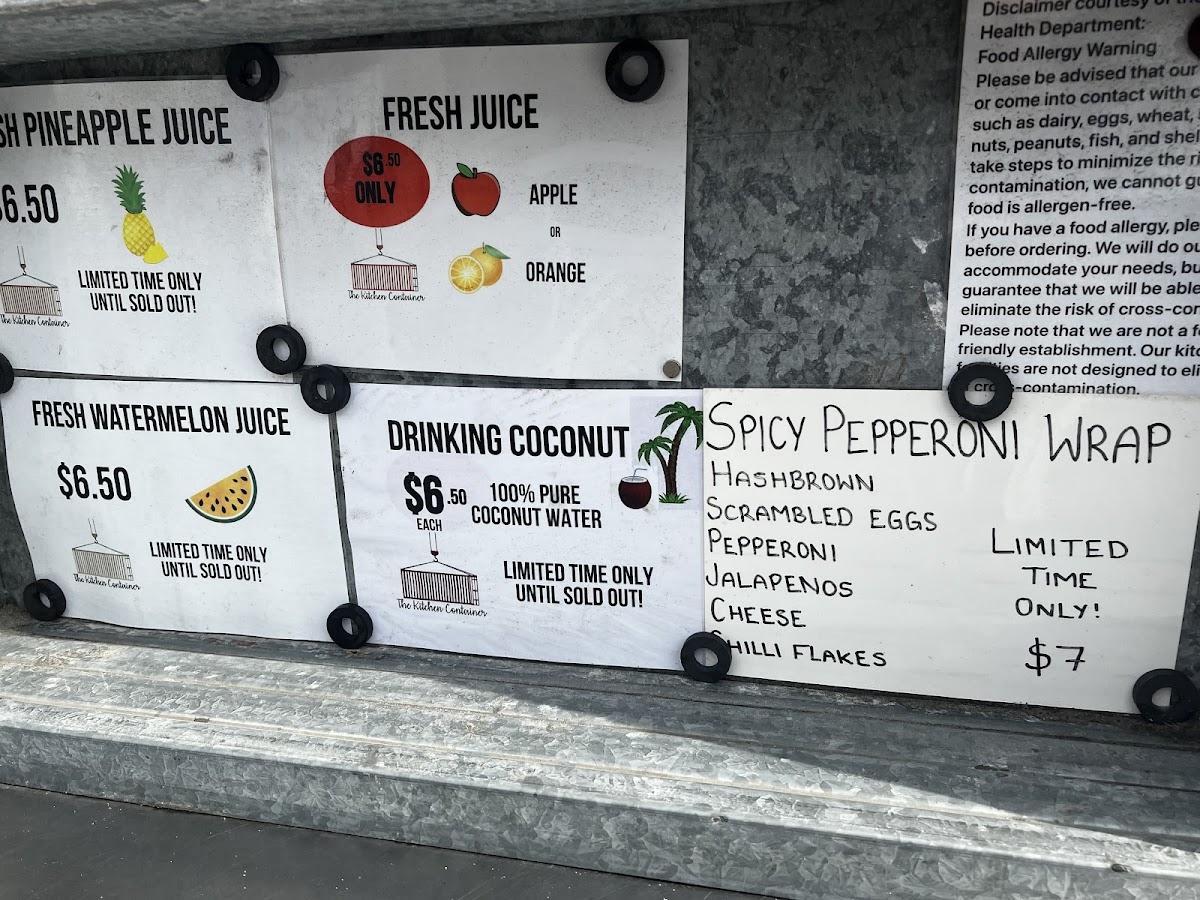 PINEAPPLE JUICE
$6.50
LIMITED TIME ONLY
UNTIL SOLD OUT!
The Kitchen Container
FRESH JUICE
$6.50
ONLY
APPLE
OR
ORANGE
The Kitchen Container
Disclaimer courtesy of
Health Department:
Food Allergy Warning
Please be advised that our
or come into contact with
such as dairy, eggs, wheat,
nuts, peanuts, fish, and
take steps to minimize the
contamination, we cannot
food is allergen-free.
If you have a food allergy,
before ordering. We will do
accommodate your needs,
guarantee that we will be able
eliminate the risk of
Please note that we are not a
friendly establishment. Our
are not designed to
cross-contamination.
FRESH WATERMELON JUICE
$6.50
LIMITED TIME ONLY
UNTIL SOLD OUT!
The Kitchen Container
DRINKING COCONUT
$6.50
EACH
100% PURE
COCONUT WATER
LIMITED TIME ONLY
UNTIL SOLD OUT!
The Kitchen Container
SPICY PEPPERONI WRAP
HASHBROWN
SCRAMBLED EGGS
PEPPERONI
JALAPENOS
CHEESE
CHILLI FLAKES
LIMITED
TIME
ONLY!
$7